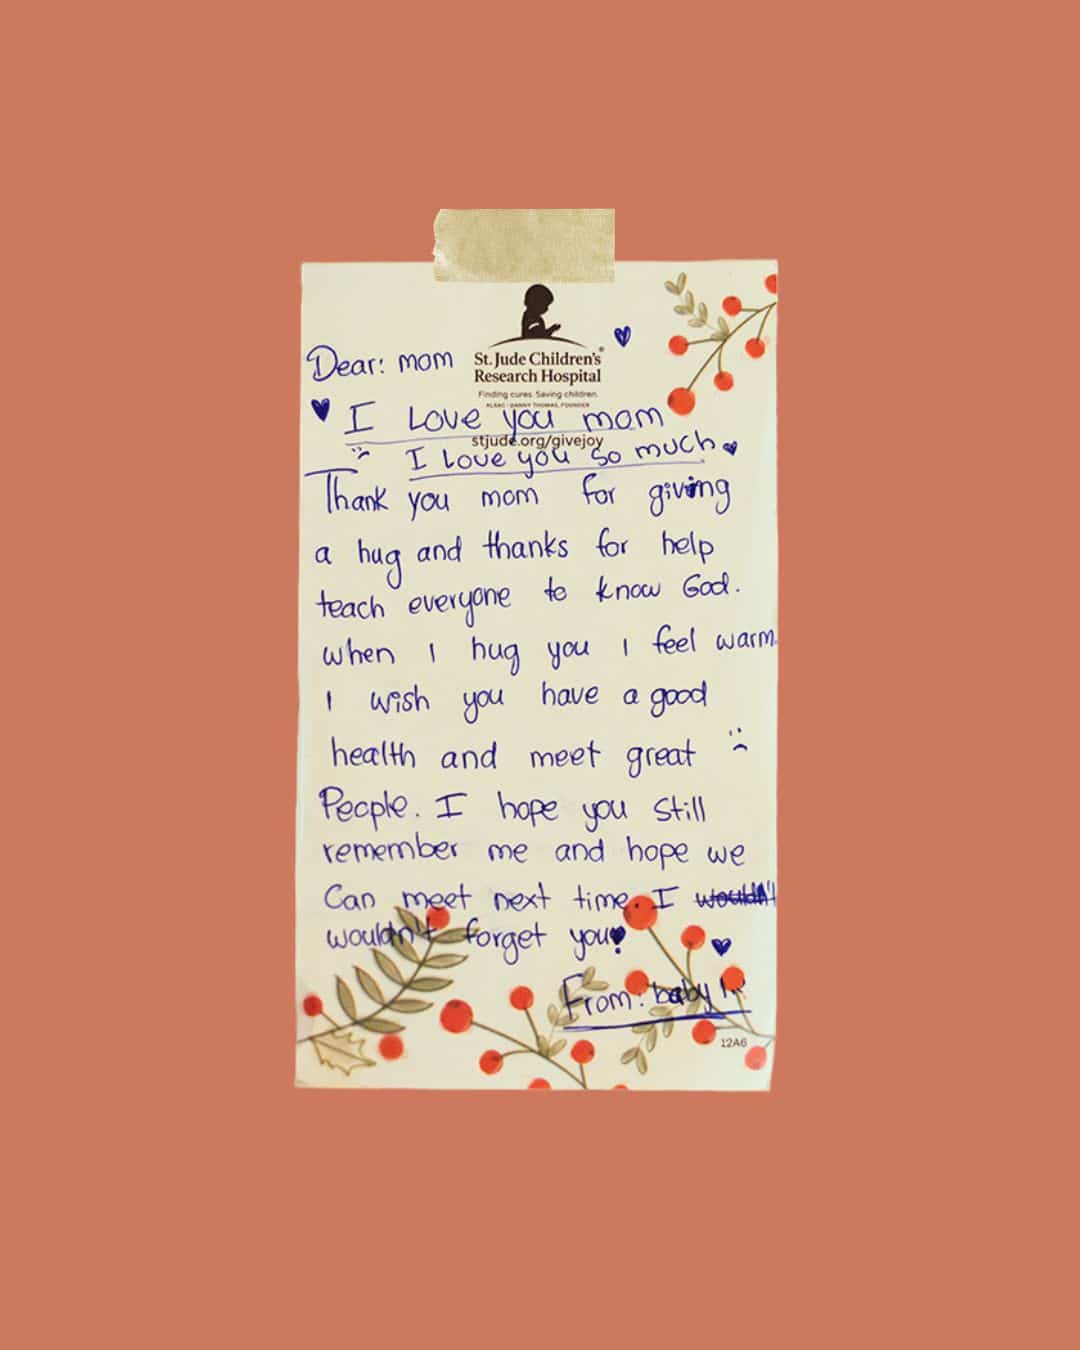 Dear: mom
St. Jude Children's®
Research Hospital
Finding cures. Saving children.
ALSAC • DANNY THOMAS, FOUNDER
I Love you mom
stjude.org/givejoy
I Love you so much
Thank you mom for giving
a hug and thanks for help
teach everyone to know God.
when I hug you I feel warm.
I wish you have a good
health and meet great
People. I hope you still
remember me and hope we
Can meet next time. I wouldn't
wouldn't forget you
From: baby
12A6